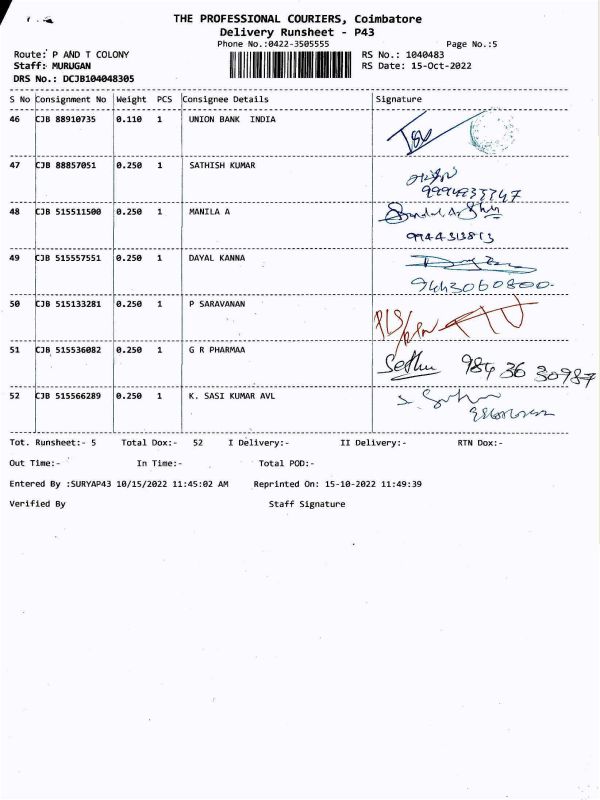 THE PROFESSIONAL COURIERS, Coimbatore
Delivery Runsheet - P43
Phone No.:0422-3505555 Page No.:5
Route: P AND T COLONY RS No.: 1040483
Staff: MURUGAN RS Date: 15-Oct-2022
DRS No.: DCJB104048305
S No Consignment No Weight PCS Consignee Details Signature
46 CJB 88910735 0.110 1 UNION BANK INDIA
47 CJB 88857051 0.250 1 SATHISH KUMAR
48 CJB 515511500 0.250 1 MANILA A
9944313813
49 CJB 515557551 0.250 1 DAYAL KANNA
9443060800-
50 CJB 515133281 0.250 1 P SARAVANAN
51 CJB 515536082 0.250 1 G R PHARMAA
Sethu 984 36 30987
52 CJB 515566289 0.250 1 K. SASI KUMAR AVL
Tot. Runsheet:- 5 Total Dox:- 52 I Delivery:- II Delivery:- RTN Dox:-
Out Time:- In Time:- Total POD:-
Entered By :SURYAP43 10/15/2022 11:45:02 AM Reprinted On: 15-10-2022 11:49:39
Verified By Staff Signature